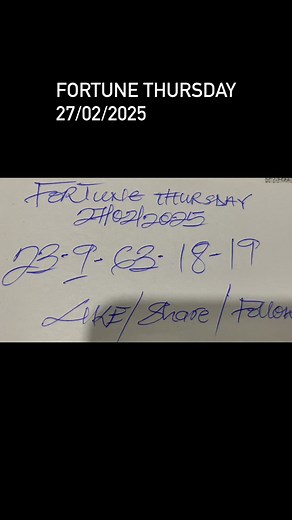 FORTUNE THURSDAY
27/02/2025
FORTUNE THURSDAY
27/02/2025
23-9-63-18-19
LIKE/Share/Follow